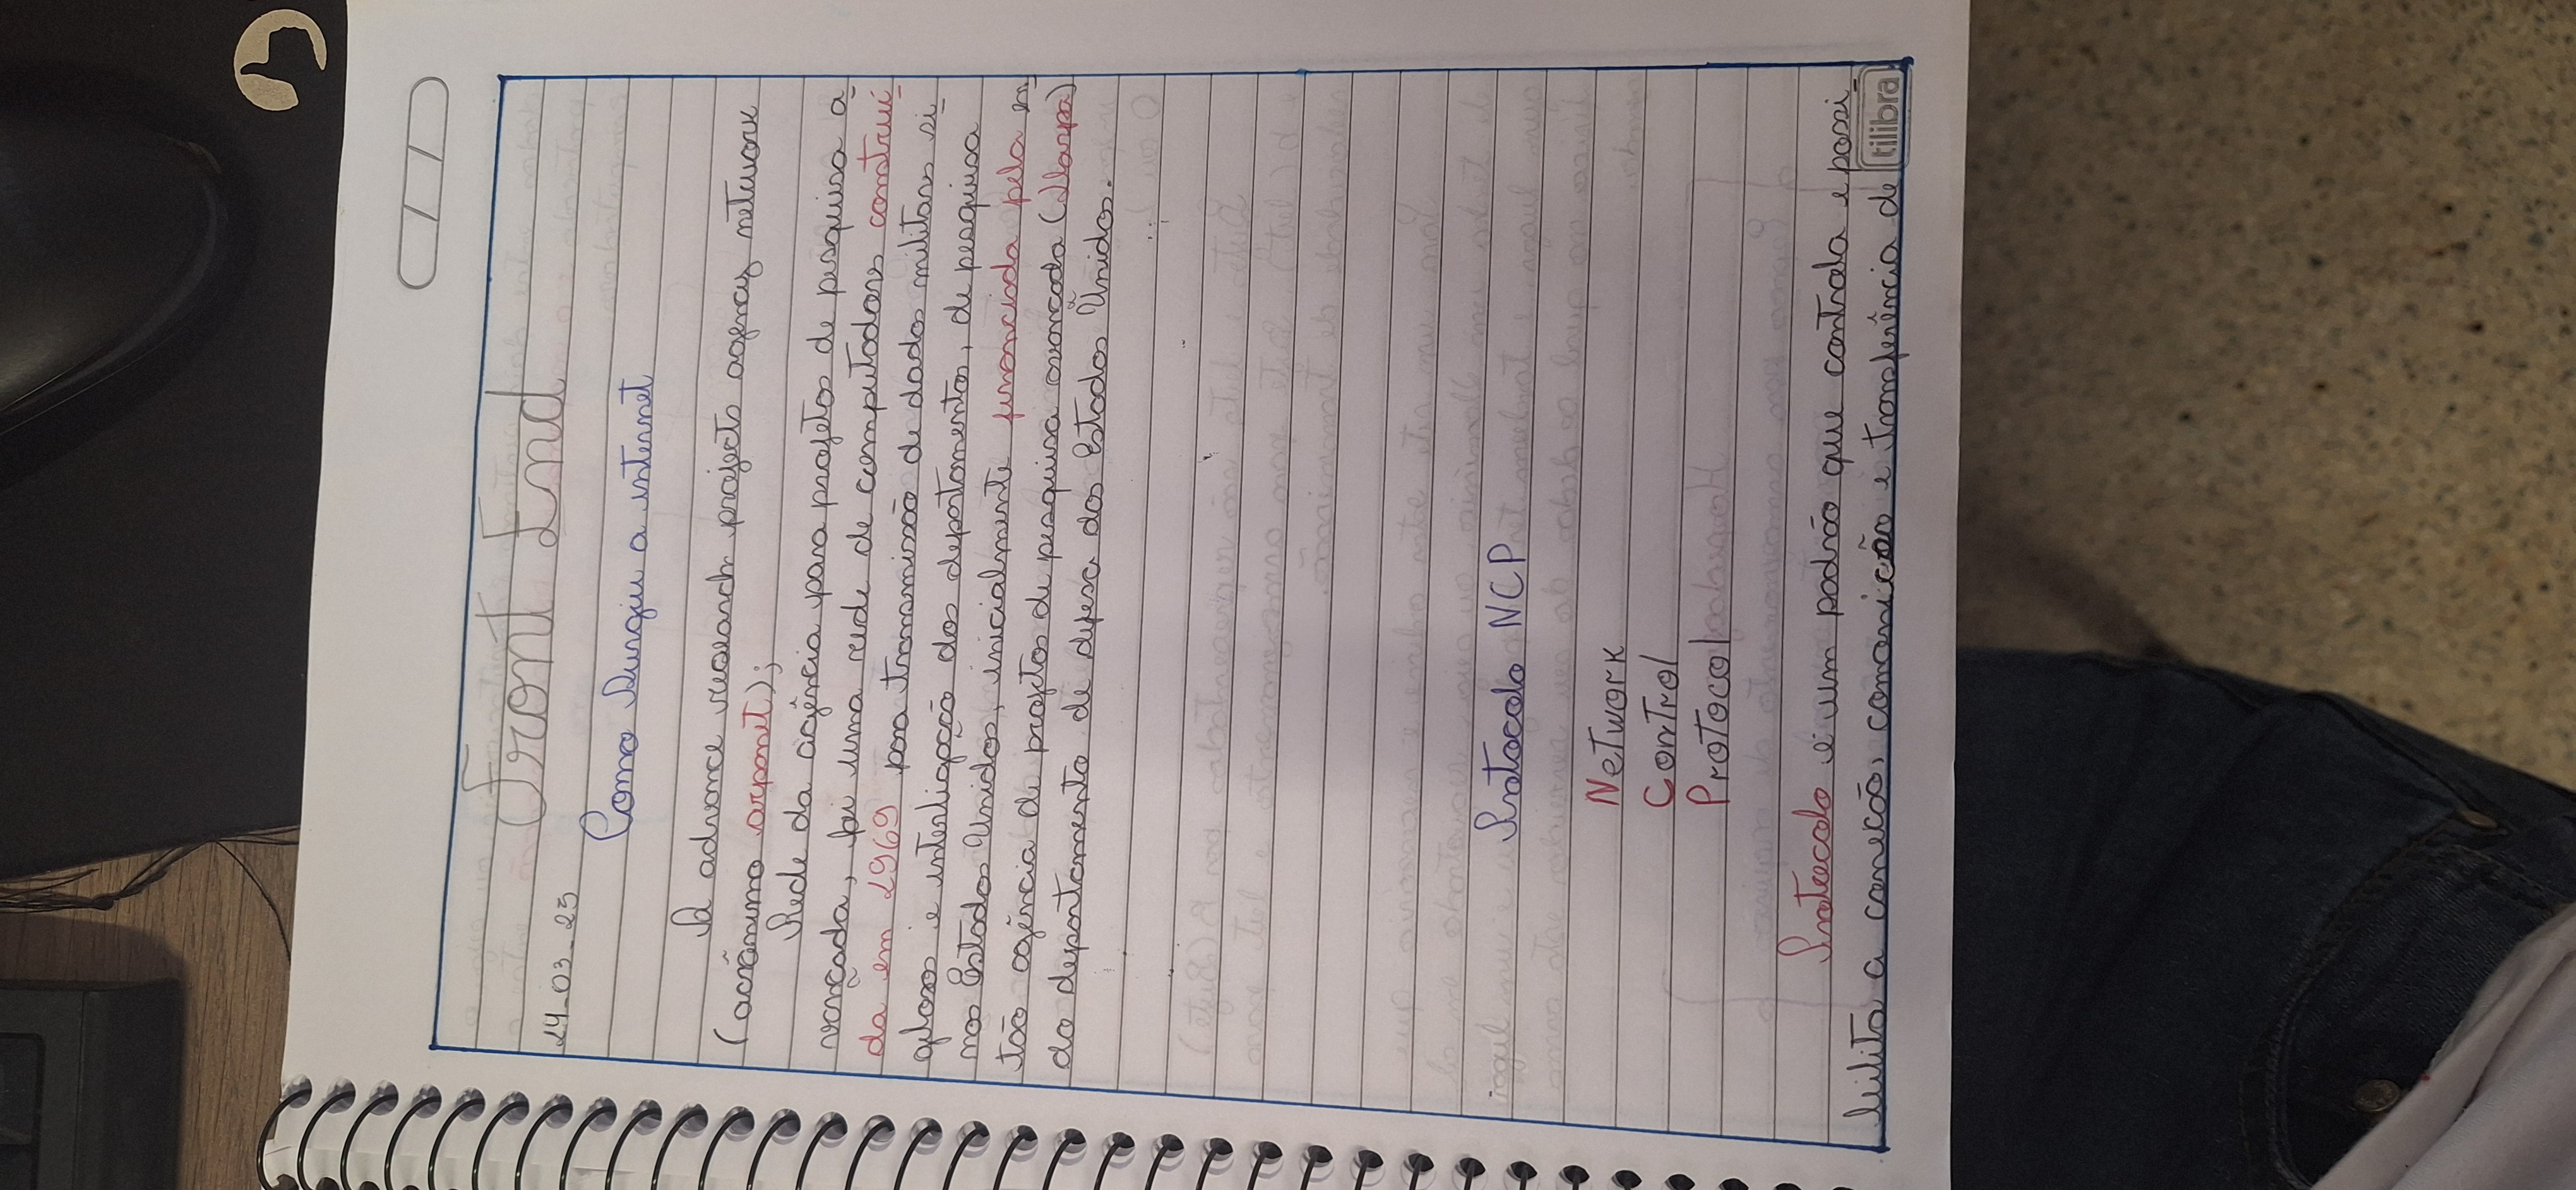 Front End
24-03-25
Como Surgiu a internet
A advance research projects agency network
(acrônimo arpanet);
Rede da agência para projetos de pesquisa a
vançada, foi uma rede de computadores construí
da em 1969 para transmissão de dados militares si
gilosos e interligação dos departamentos, de pesquisa
nos Estados Unidos, inicialmente financiada pela en
tão agência de projetos de pesquisa avançada (Darpa)
do departamento de defesa dos Estados Unidos.
Protocolo NCP
Network
Control
Protocol
Protocolo é um padrão que controla e possi
bilita a coneção, comonicão e transferência de
tilibra